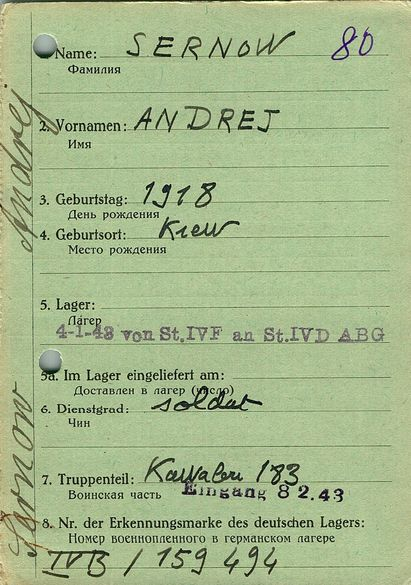 1. Name: SERNOW 80
Фамилия
2. Vornamen: ANDREJ
Имя
3. Geburtstag: 1918
День рождения
4. Geburtsort: Kiew
Место рождения
5. Lager:
Лагерь
4-1-43 von St.IVF an St.IVD ABG
5a. Im Lager eingeliefert am:
Доставлен в лагер (число)
6. Dienstgrad: soldat
Чин
7. Truppenteil: Kawaleri 183
Воинская часть Eingang 8 2.43
8. Nr. der Erkennungsmarke des deutschen Lagers:
Номер военнопленного в германском лагере
IVB / 159 494
Sernow Andrej